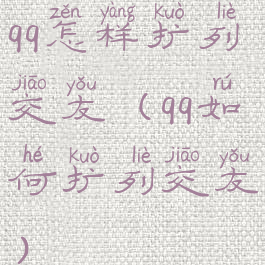 zěn yàng kuò liè
qq怎样扩列
jiāo yǒu rú
交友(qq如
hé kuò liè jiāo yǒu
何扩列交友
)